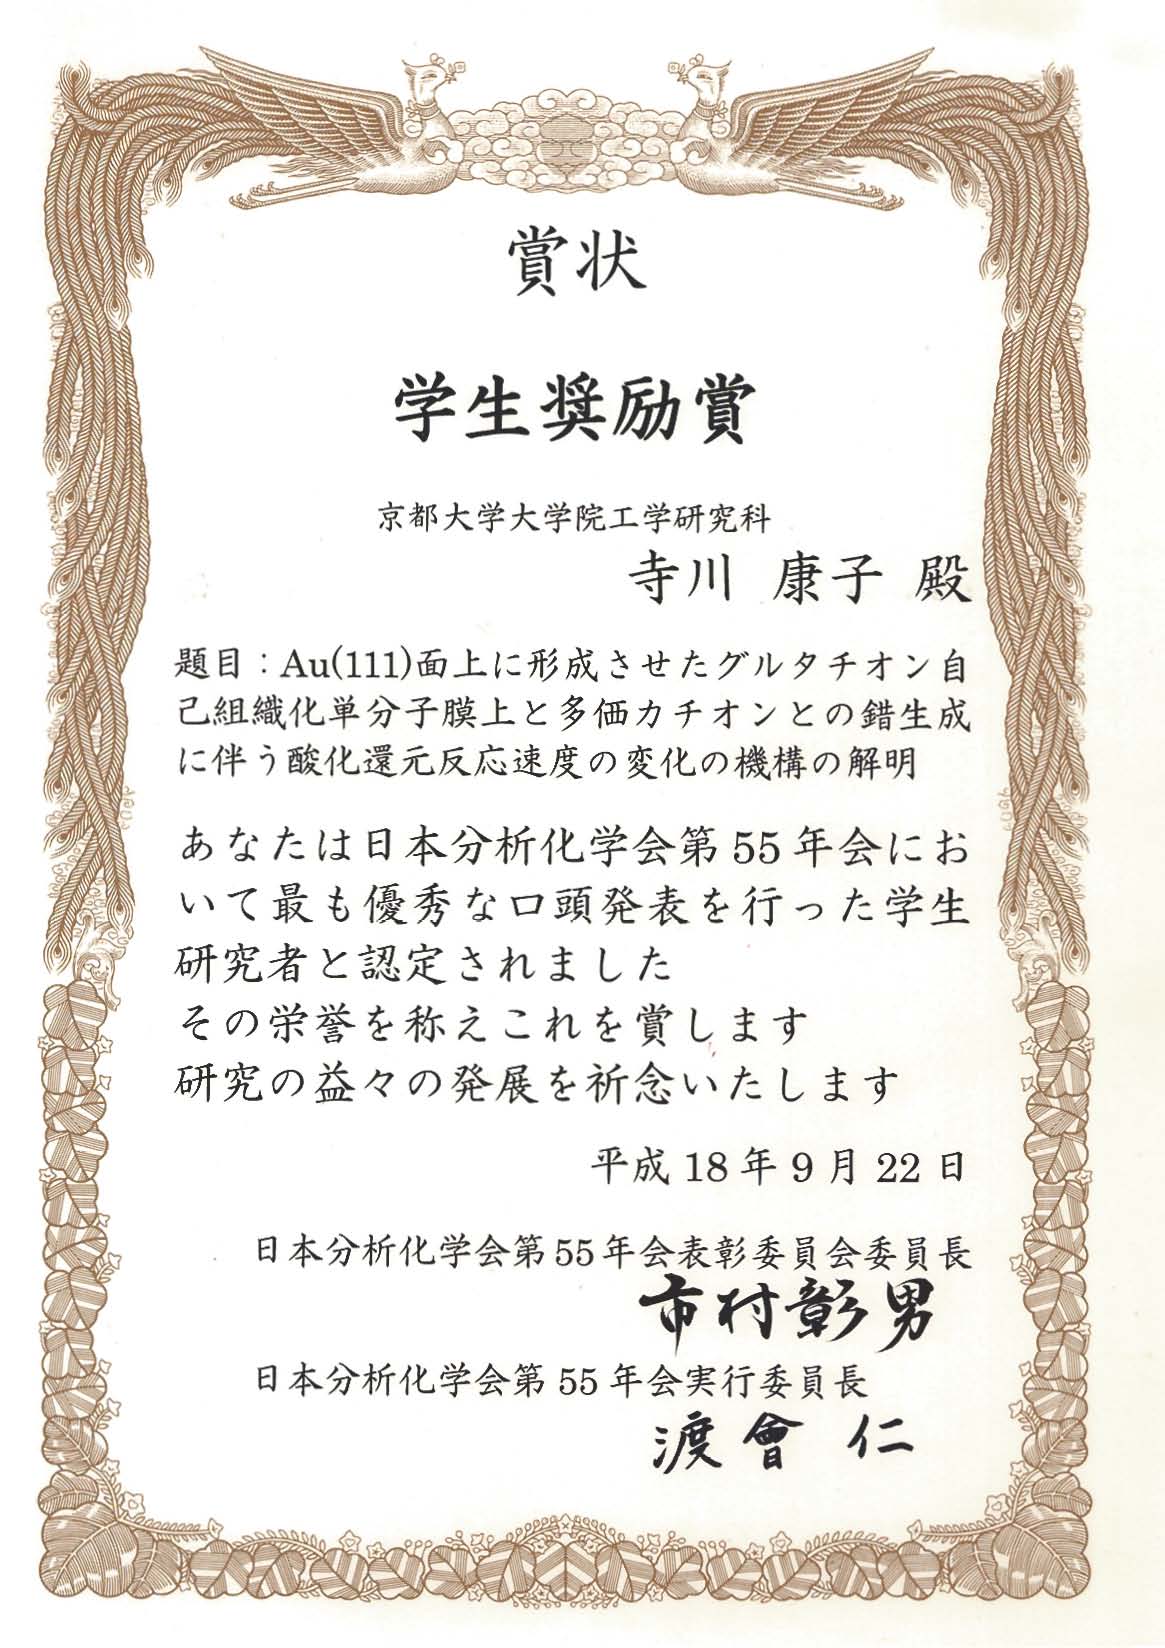 賞状
学生奨励賞
京都大学大学院工学研究科
寺川 康子 殿
題目：Au(111)面上に形成させたグルタチオン自
己組織化単分子膜上と多価カチオンとの錯生成
に伴う酸化還元反応速度の変化の機構の解明
あなたは日本分析化学会第 55 年会にお
いて最も優秀な口頭発表を行った学生
研究者と認定されました
その栄誉を称えこれを賞します
研究の益々の発展を祈念いたします
平成 18 年 9 月 22 日
日本分析化学会第 55 年会表彰委員会委員長
市村彰男
日本分析化学会第 55 年会実行委員長
渡會 仁